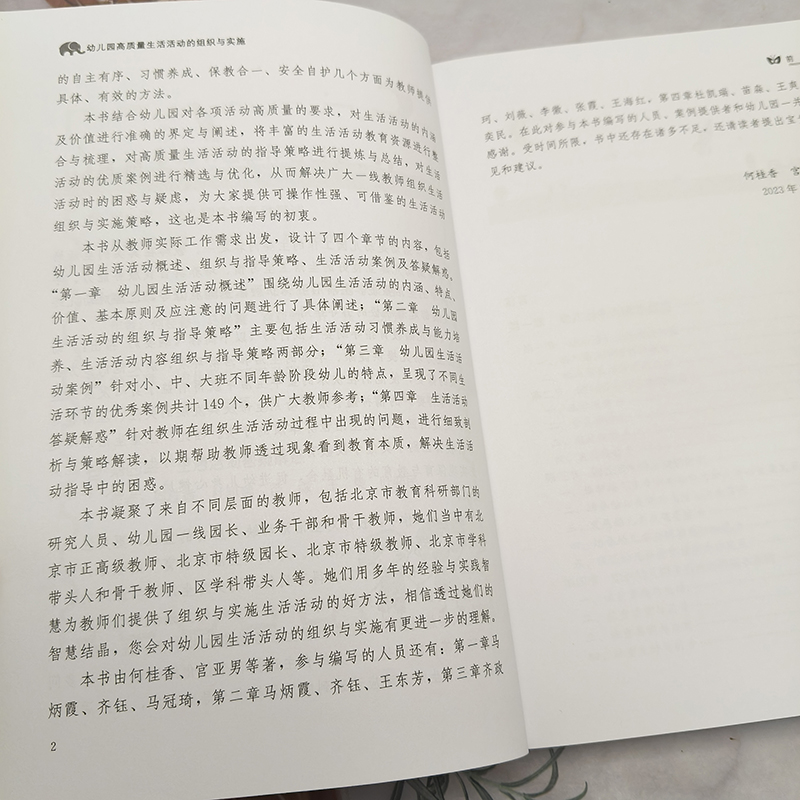 幼儿园高质量生活活动的组织与实施
的自主有序、习惯养成、保教合一、安全自护几个方面为教师提供
具体、有效的方法。
本书结合幼儿园对各项活动高质量的要求，对生活活动的内涵
及价值进行准确的界定与阐述，将丰富的生活活动教育资源进行整
合与梳理，对高质量生活活动的指导策略进行提炼与总结，对生活
活动的优质案例进行精选与优化，从而解决广大一线教师组织生活
活动时的困惑与疑虑，为大家提供可操作性强、可借鉴的生活活动
组织与实施策略，这也是本书编写的初衷。
本书从教师实际工作需求出发，设计了四个章节的内容，包括
幼儿园生活活动概述、组织与指导策略、生活活动案例及答疑解惑。
“第一章 幼儿园生活活动概述”围绕幼儿园生活活动的内涵、特点、
价值、基本原则及应注意的问题进行了具体阐述；“第二章 幼儿园
生活活动的组织与指导策略”主要包括生活活动习惯养成与能力培
养、生活活动内容组织与指导策略两部分；“第三章 幼儿园生活活
动案例”针对小、中、大班不同年龄阶段幼儿的特点，呈现了不同生
活环节的优秀案例共计 149 个，供广大教师参考；“第四章 生活活动
答疑解惑”针对教师在组织生活活动过程中出现的问题，进行细致剖
析与策略解读，以期帮助教师透过现象看到教育本质，解决生活活
动指导中的困惑。
本书凝聚了来自不同层面的教师，包括北京市教育科研部门的
研究人员、幼儿园一线园长、业务干部和骨干教师，她们当中有北
京市正高级教师、北京市特级园长、北京市特级教师、北京市学科
带头人和骨干教师、区学科带头人等。她们用多年的经验与实践智
慧为教师们提供了组织与实施生活活动的好方法，相信透过她们的
智慧结晶，您会对幼儿园生活活动的组织与实施有更进一步的理解。
本书由何桂香、官亚男等著，参与编写的人员还有：第一章马
炳霞、齐钰、马冠琦，第二章马炳霞、齐钰、王东芳，第三章齐政
2
前
珂、刘薇、李徽、张霞、王海红，第四章杜凯瑞、苗淼、王爽
奕民。在此对参与本书编写的人员、案例提供者和幼儿园一并
感谢。受时间所限，书中还存在诸多不足，还请读者提出宝
见和建议。
何桂香 官
2023年